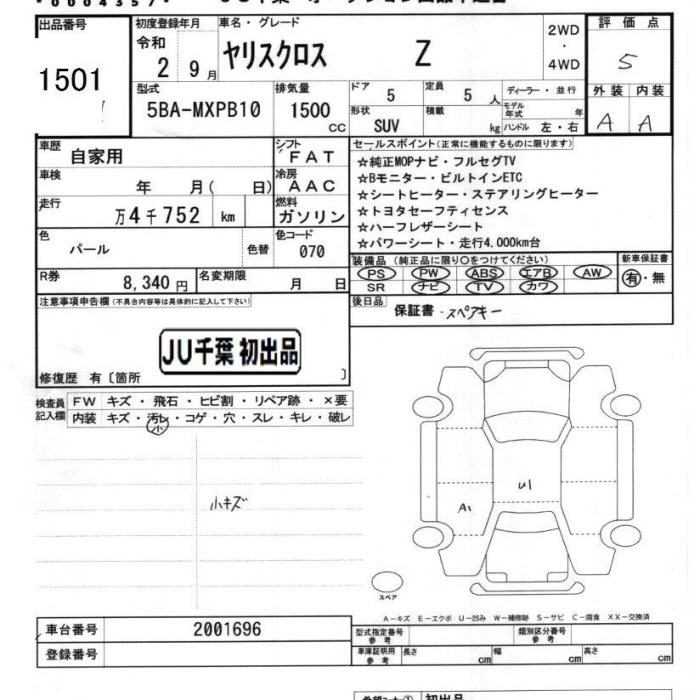 出品番号 初度登録年月 車名・グレード 2WD 評価点
令和 ・
1501 2 9月 ヤリスクロス Z 4WD 5
型式 排気量 ドア 定員 ディーラー・並行 外装 内装
5BA-MXPB10 1500 5 5人 モデル年式 年
CC 形状 SUV 積載 kg ハンドル 左・右 A A
車歴 自家用 シフト FAT セールスポイント(正常に機能するものに限ります)
☆純正MOPナビ・フルセグTV
車検 年 月( 日) 冷房 AAC ☆Bモニター・ビルトインETC
☆シートヒーター・ステアリングヒーター
走行 万4千752 km 燃料 ガソリン ☆トヨタセーフティセンス
☆ハーフレザーシート
色 パール 色替 色コード 070 ☆パワーシート・走行4.000km台
装備品(純正品に限り○をつけてください) 新車保証書
R券 8,340円 名変期限 月 日 PS PW ABS エアB AW 有・無
SR ナビ TV カワ
注意事項申告欄(不具合内容等は具体的に記入して下さい) 後日品 保証書・スペアキー
JU千葉 初出品
修復歴 有〔箇所 〕
検査員 FW キズ・飛石・ヒビ割・リペア跡・×要
記入欄 内装 キズ・汚レ・コゲ・穴・スレ・キレ・破レ
小
小キズ
U1
A1
スペア
A−キズ E−エクボ U−凹み W−補修跡 S−サビ C−腐食 XX−交換済
車台番号 2001696 型式指定番号 参考 類別区分番号 参考
登録番号 車庫証明用 参考 長さ cm 幅 cm 高さ cm
初出品